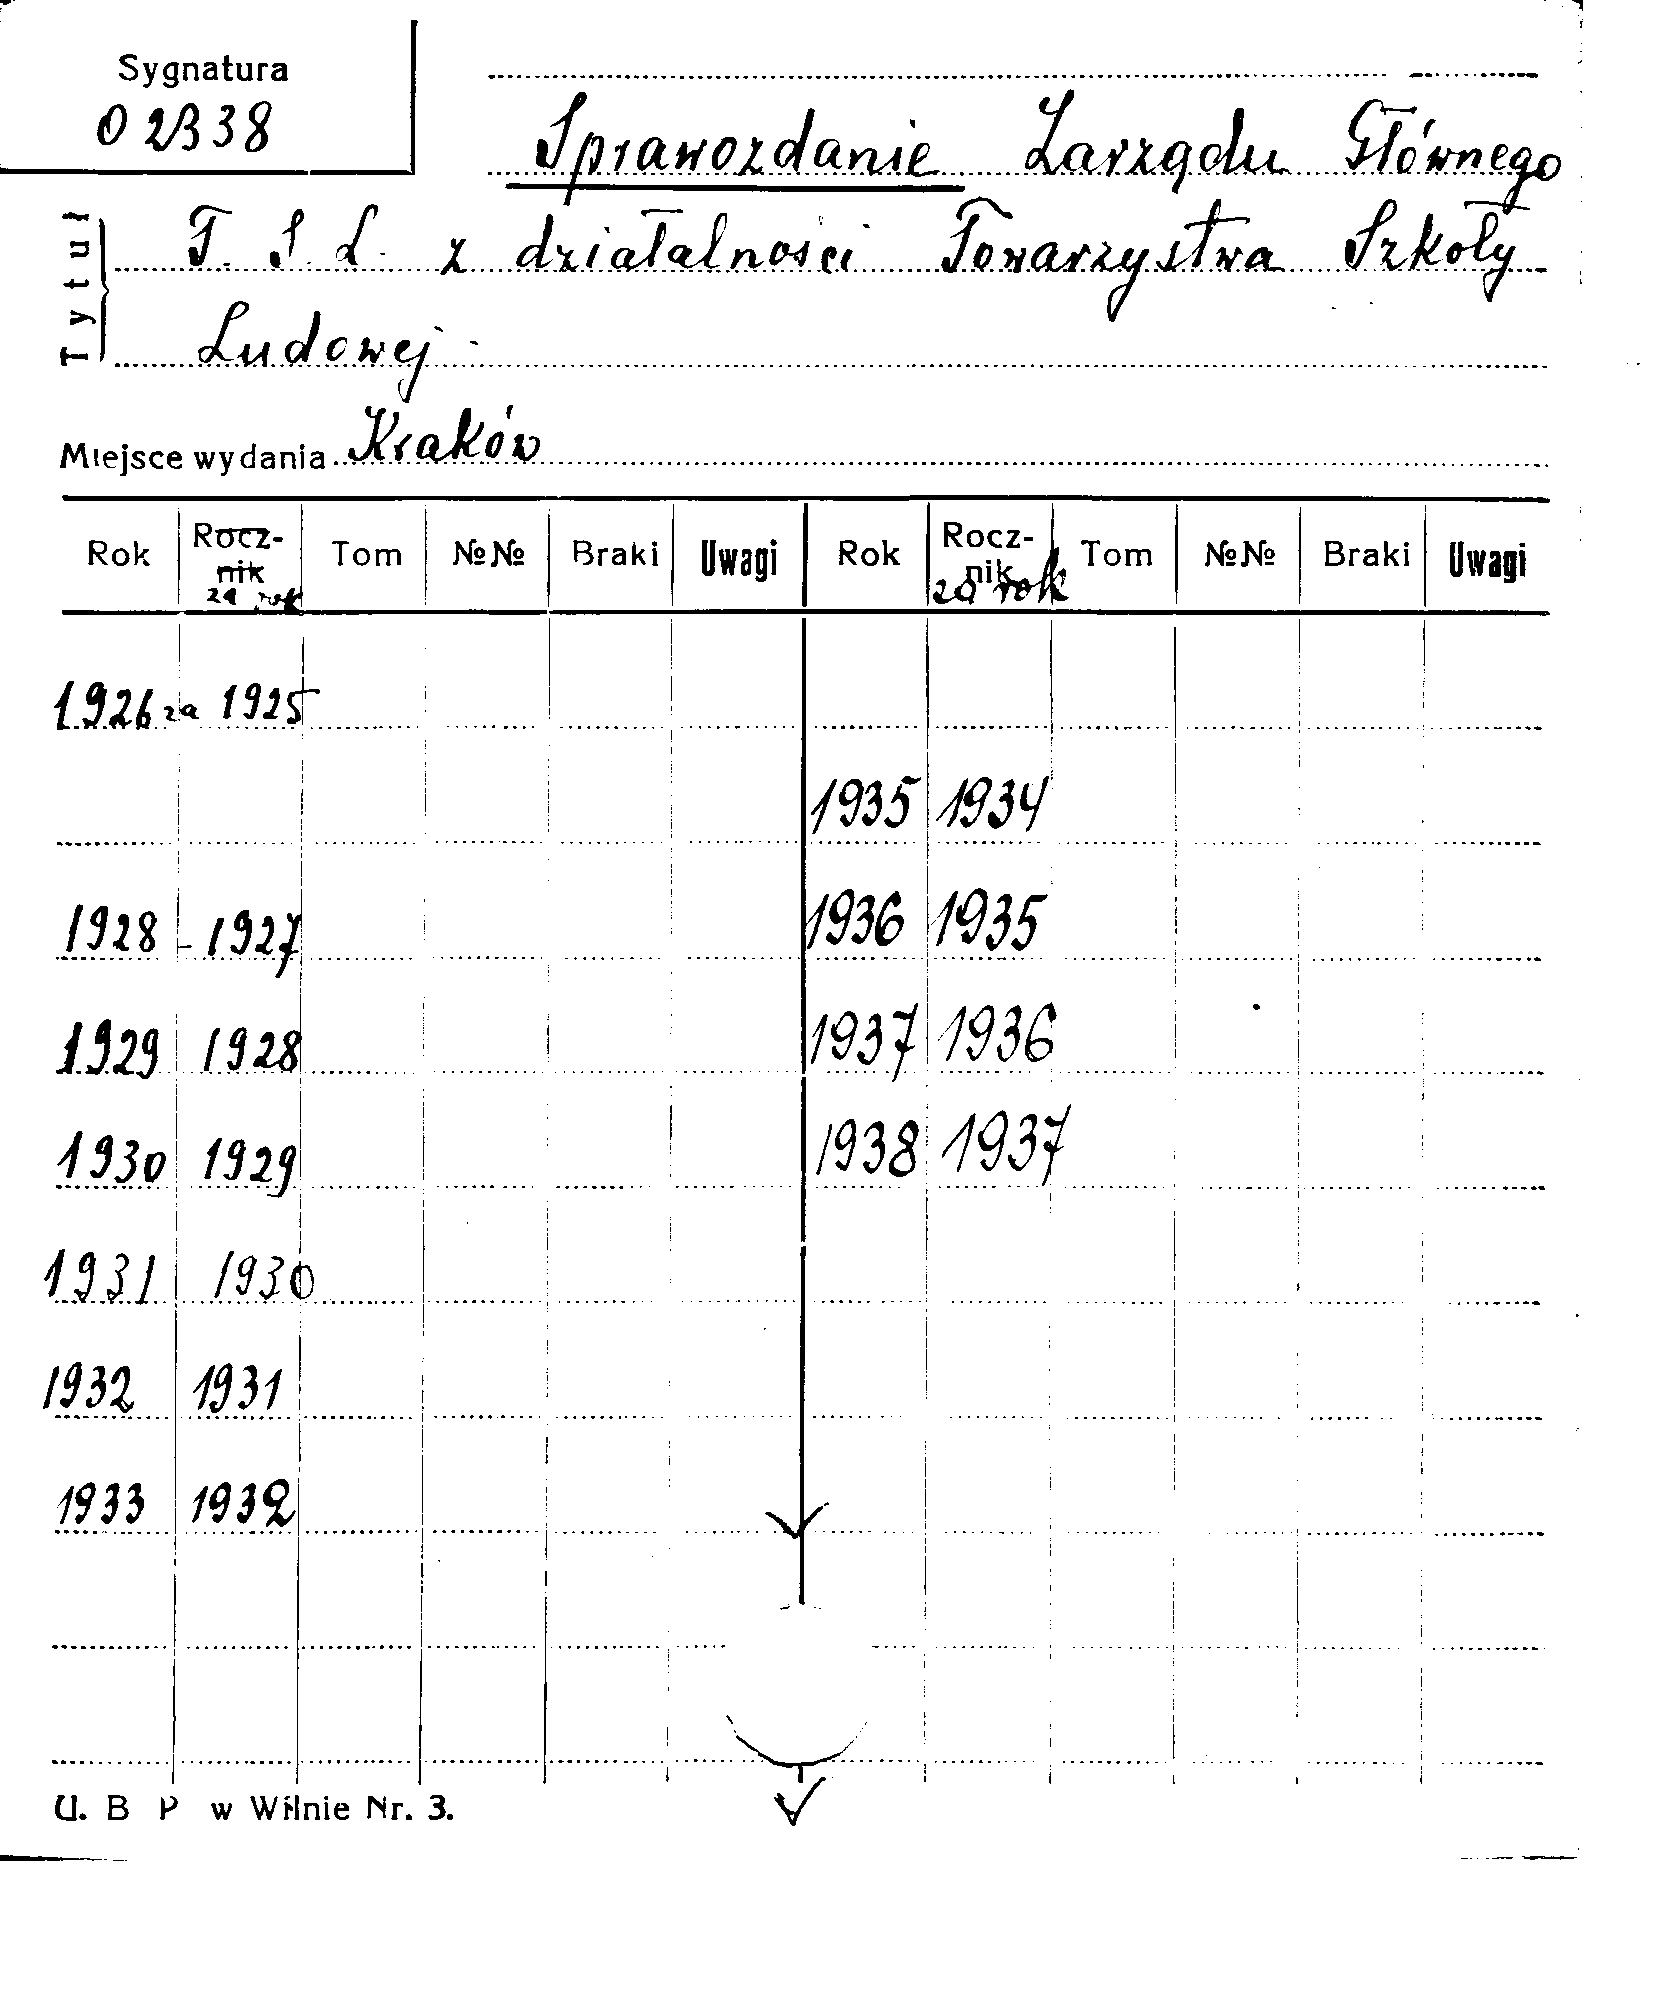 Sygnatura
02338
Tytuł
Sprawozdanie Zarządu Głównego
T. S. L. z działalności Towarzystwa Szkoły
Ludowej
Miejsce wydania Kraków
Rok Rocz-nik za rok Tom №№ Braki Uwagi Rok Rocz-nik za rok Tom №№ Braki Uwagi
1926 za 1925
1935 1934
1928 - 1927 1936 1935
1929 1928 1937 1936
1930 1929 1938 1937
1931 1930
1932 1931
1933 1932
U. B P w Wilnie Nr. 3.